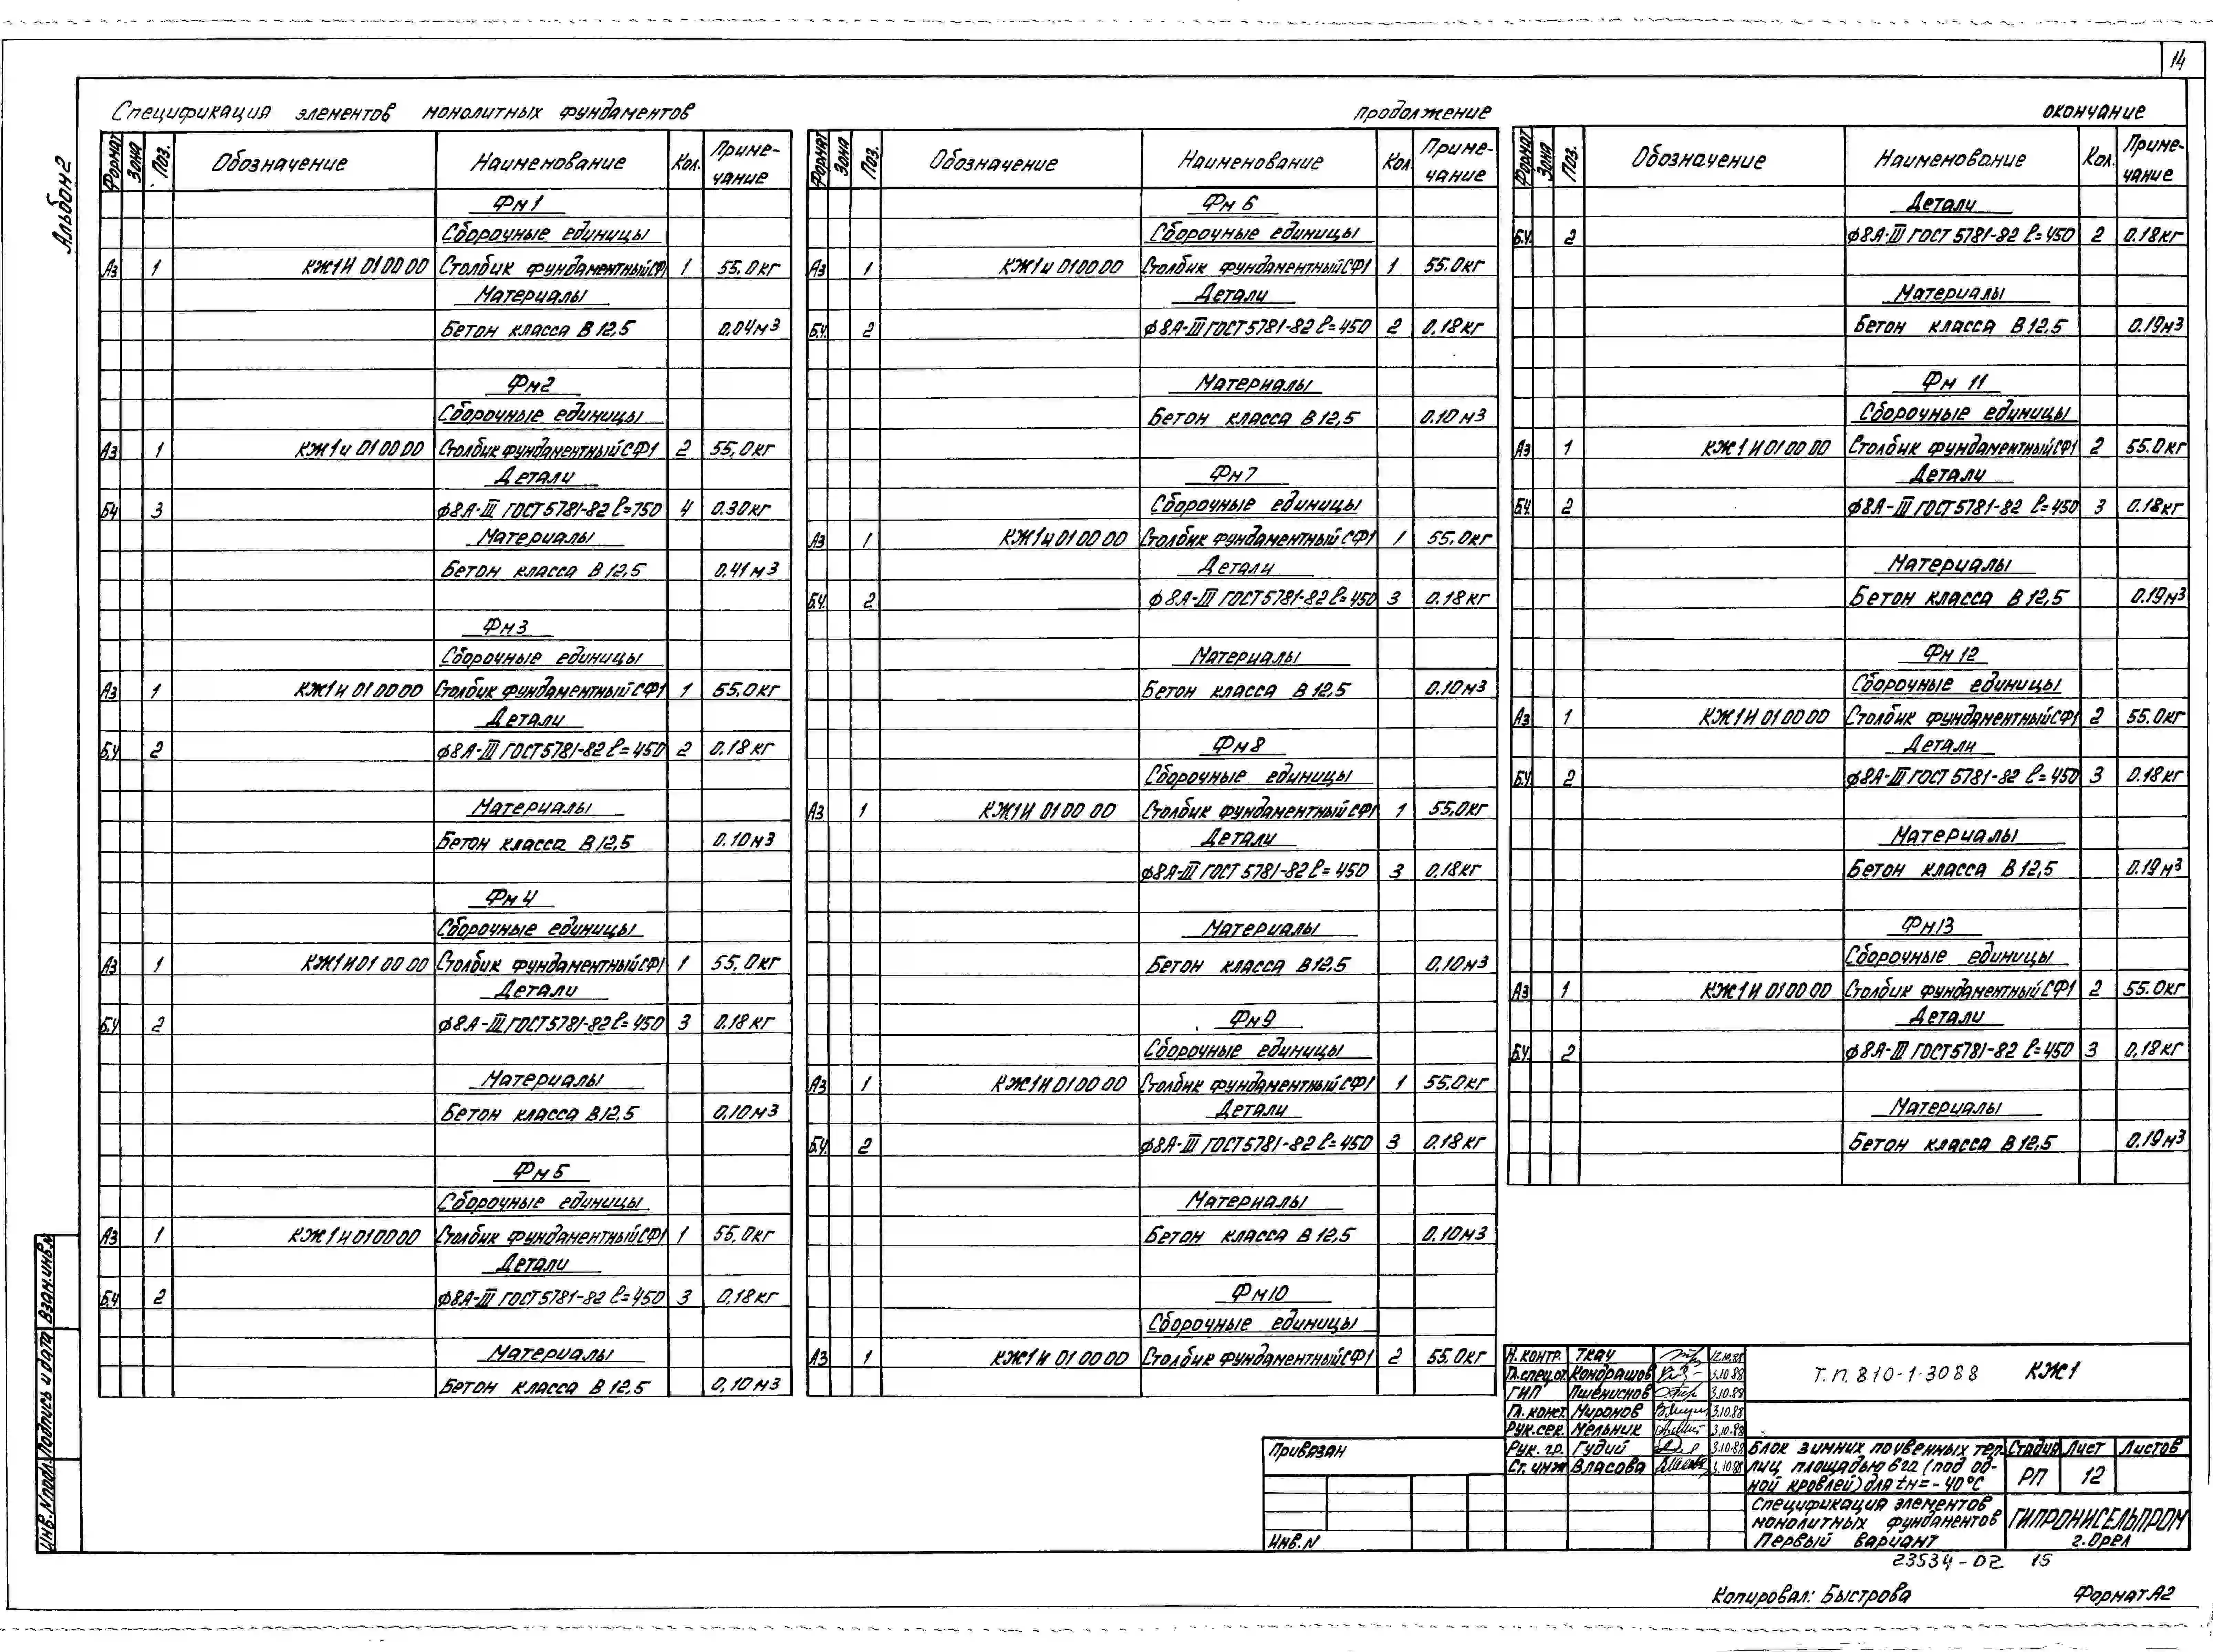 14
Альбом 2
Спецификация элементов монолитных фундаментов
Формат Зона Поз. Обозначение Наименование Кол. Приме-
чание
Фм1
Сборочные единицы
А3 1 КЖ1И 01 00 00 Столбик фундаментный СФ1 1 55.0кг
Материалы
Бетон класса В 12,5 0.04м3
Фм2
Сборочные единицы
А3 1 КЖ1И 01 00 00 Столбик фундаментный СФ1 2 55,0кг
Детали
БЧ 3 ф8А-III ГОСТ 5781-82 ℓ=750 4 0.30кг
Материалы
Бетон класса В 12,5 0.41м3
Фм3
Сборочные единицы
А3 1 КЖ1И 01 00 00 Столбик фундаментный СФ1 1 55.0кг
Детали
Б.Ч 2 ф8А-III ГОСТ 5781-82 ℓ=450 2 0.18кг
Материалы
Бетон класса В 12,5 0.10м3
Фм4
Сборочные единицы
А3 1 КЖ1И 01 00 00 Столбик фундаментный СФ1 1 55,0кг
Детали
Б.Ч 2 ф8А-III ГОСТ 5781-82 ℓ=450 3 0.18кг
Материалы
Бетон класса В 12,5 0,10м3
Фм5
Сборочные единицы
А3 1 КЖ1И 01 00 00 Столбик фундаментный СФ1 1 55.0кг
Детали
Б.Ч 2 ф8А-III ГОСТ 5781-82 ℓ=450 3 0,18кг
Материалы
Бетон класса В 12,5 0,10м3
продолжение
Формат Зона Поз. Обозначение Наименование Кол. Приме-
чание
Фм 6
Сборочные единицы
А3 1 КЖ1И 01 00 00 Столбик фундаментный СФ1 1 55.0кг
Детали
Б.Ч. 2 ф8А-III ГОСТ 5781-82 ℓ=450 2 0,18кг
Материалы
Бетон класса В 12,5 0.10м3
Фм7
Сборочные единицы
А3 1 КЖ1И 01 00 00 Столбик фундаментный СФ1 1 55.0кг
Детали
Б.Ч. 2 ф8А-III ГОСТ 5781-82 ℓ=450 3 0.18кг
Материалы
Бетон класса В 12,5 0.10м3
Фм8
Сборочные единицы
А3 1 КЖ1И 01 00 00 Столбик фундаментный СФ1 1 55,0кг
Детали
ф8А-III ГОСТ 5781-82 ℓ=450 3 0,18кг
Материалы
Бетон класса В 12,5 0,10м3
Фм9
Сборочные единицы
А3 1 КЖ1И 01 00 00 Столбик фундаментный СФ1 1 55.0кг
Детали
Б.Ч. 2 ф8А-III ГОСТ 5781-82 ℓ=450 3 0.18кг
Материалы
Бетон класса В 12,5 0.10м3
Фм10
Сборочные единицы
А3 1 КЖ1И 01 00 00 Столбик фундаментный СФ1 2 55.0кг
окончание
Формат Зона Поз. Обозначение Наименование Кол. Приме-
чание
Детали
Б.Ч. 2 ф8А-III ГОСТ 5781-82 ℓ=450 2 0.18кг
Материалы
Бетон класса В 12,5 0.19м3
Фм 11
Сборочные единицы
А3 1 КЖ1И 01 00 00 Столбик фундаментный СФ1 2 55.0кг
Детали
Б.Ч. 2 ф8А-III ГОСТ 5781-82 ℓ=450 3 0.18кг
Материалы
Бетон класса В 12,5 0.19м3
Фм 12
Сборочные единицы
А3 1 КЖ1И 01 00 00 Столбик фундаментный СФ1 2 55.0кг
Детали
Б.Ч. 2 ф8А-III ГОСТ 5781-82 ℓ=450 3 0.18кг
Материалы
Бетон класса В 12,5 0.19м3
Фм13
Сборочные единицы
А3 1 КЖ1И 01 00 00 Столбик фундаментный СФ1 2 55.0кг
Детали
Б.Ч. 2 ф8А-III ГОСТ 5781-82 ℓ=450 3 0,18кг
Материалы
Бетон класса В 12,5 0.19м3
Инв.Nподл. Подпись и дата Взам.инв.N
Привязан
Инв.N
Н.контр. Ткач 12.10.88
Гл.спец.от. Кондрашов 3.10.88
ГИП Пшениснов 3.10.88
Гл.конст. Миронов 3.10.88
Рук.сек. Мельник 3.10.88
Рук. гр. Гудий 3.10.88
Ст. инж Власова 3.10.88
Т.П. 810-1-30 88 КЖ1
Блок зимних почвенных теп-
лиц площадью 6га (под од-
ной кровлей) для tн=-40°С
Стадия Лист Листов
РП 12
Спецификация элементов
монолитных фундаментов
Первый вариант
ГИПРОНИСЕЛЬПРОМ
г.Орел
23534-02 15
Копировал: Быстрова Формат А2